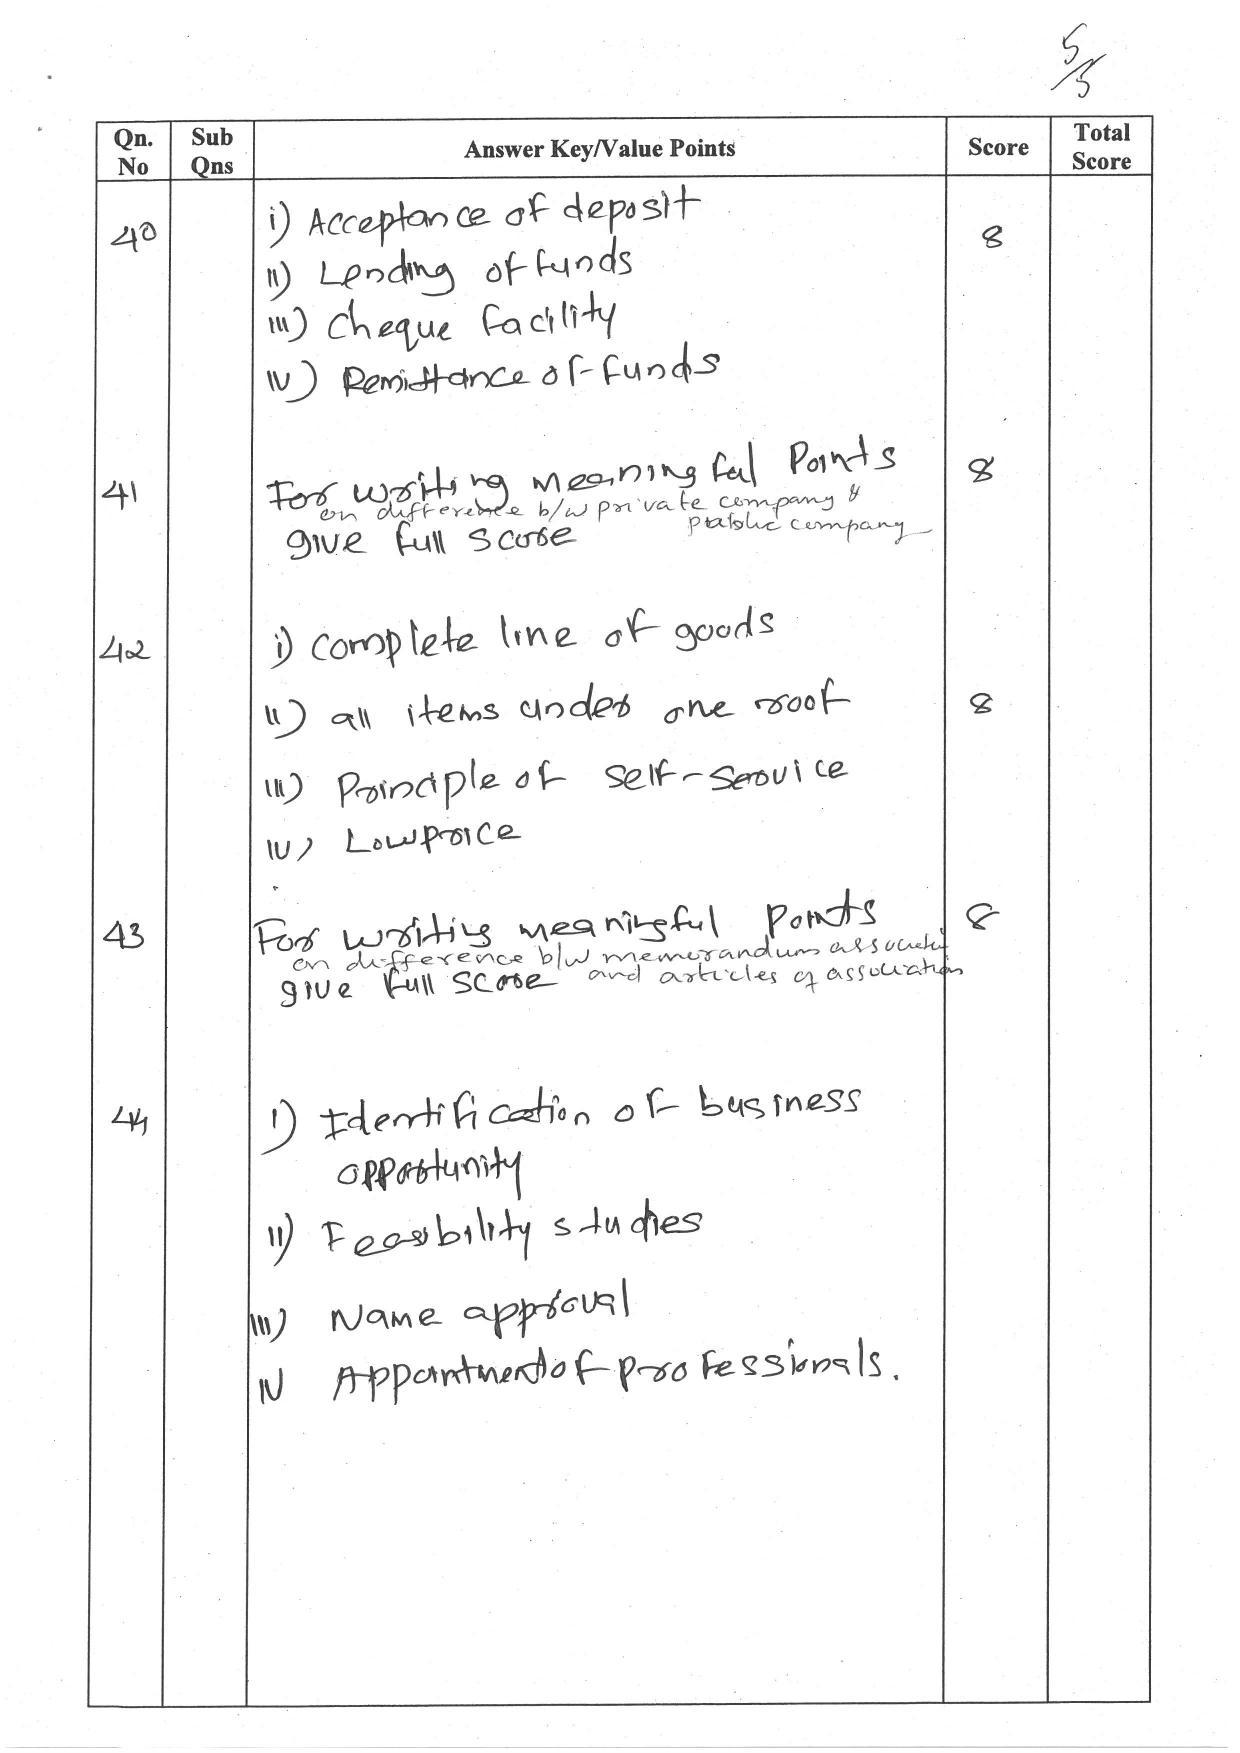 5/5
Qn. No | Sub Qns | Answer Key/Value Points | Score | Total Score
40 | i) Acceptance of deposit | 8
ii) Lending of funds
iii) Cheque facility
iv) Remittance of funds
41 | For writing meaningful Points | 8
on difference b/w private company &
public company
give full score
42 | i) complete line of goods
ii) all items under one roof | 8
iii) Principle of self-service
iv) Low price
43 | For writing meaningful points | 8
on difference b/w memorandum association
and articles of association
give full score
44 | i) Identification of business
opportunity
ii) Feasibility studies
iii) Name approval
iv Appointment of professionals.